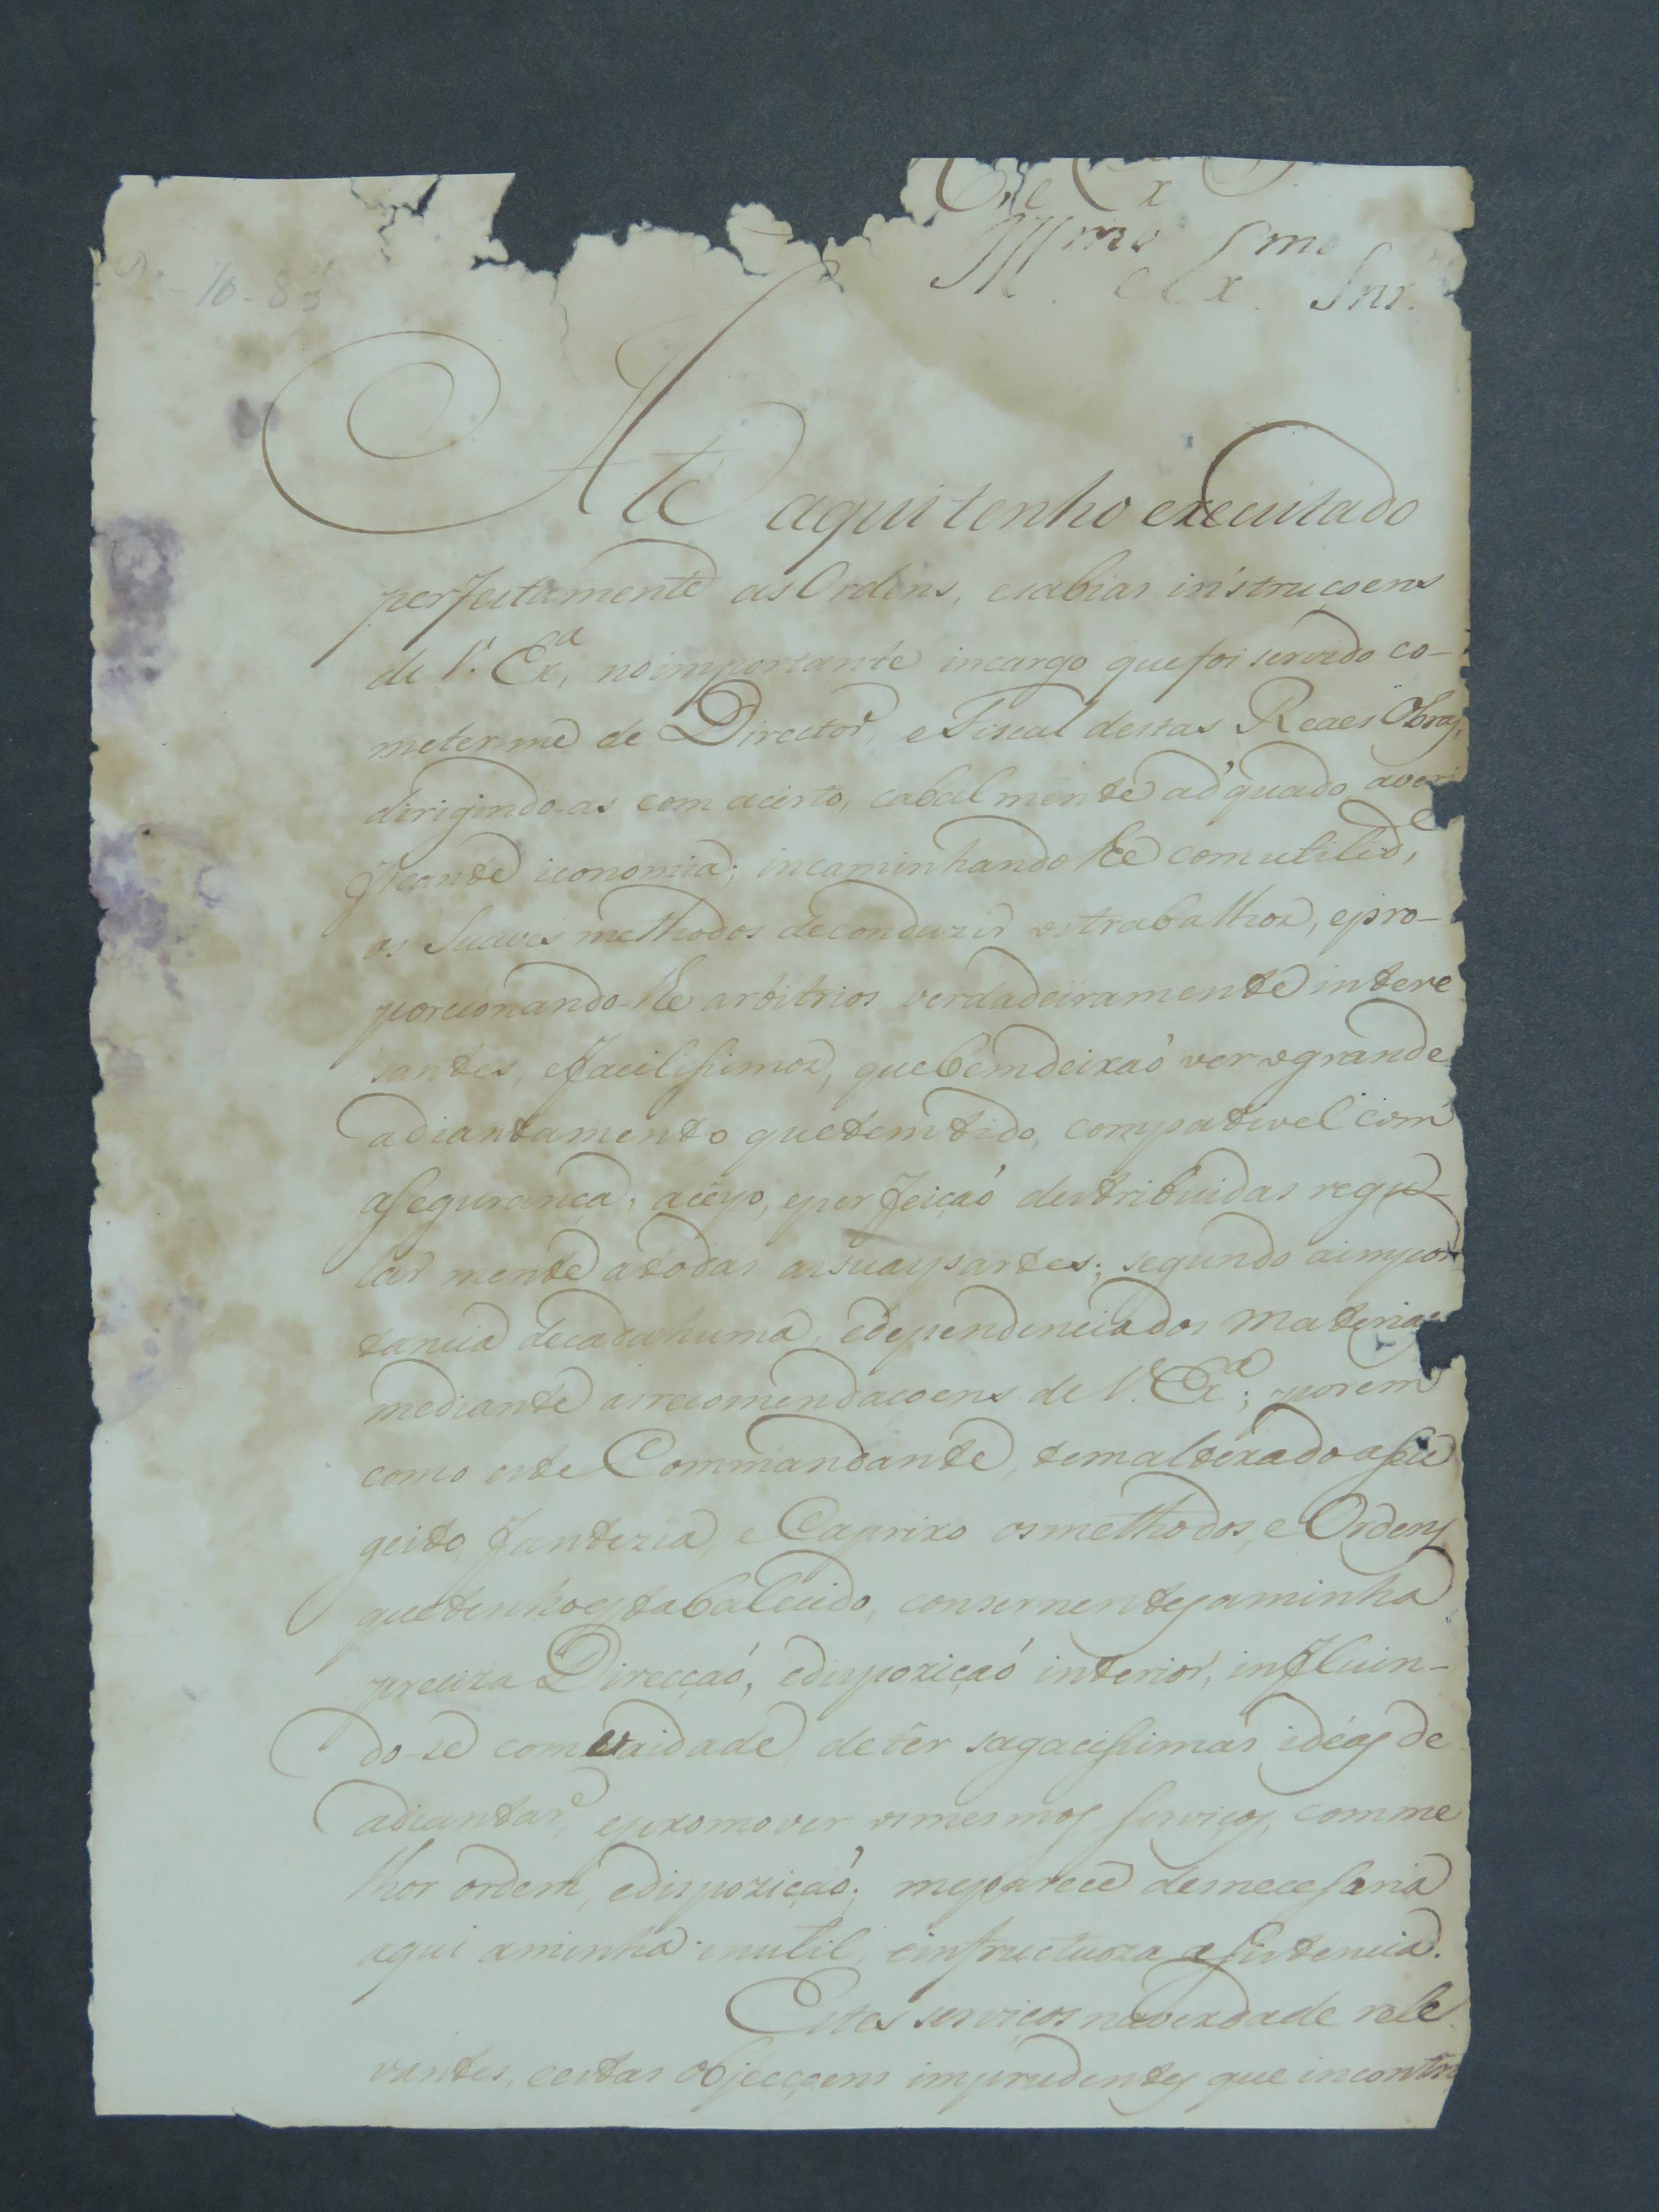 Ill.mo e Ex.mo Snr.
Ate aqui tenho executado
perfeitamente as Ordens, e sabias instruçoens
de V. Ex.a, no importante incargo que foi servido co-
meter-me de Director, e Fiscal destas Reaes Obras,
dirigindo-as com acerto, cabalmente ad'quado, averi
ficante iconomia; incaminhando lhe com utilid.e,
os Suaves methodos de conduzir os trabalhos, e pro-
porcionando-lhe arbitrios verdadeiramente intere
santes, e facilissimos, que bem deixaó ver o grande
adiantamento que tem tido, compativel com
a segurança, aceyo, e perfeiçaó destribuidas regu-
lar mente a todas as suas partes; segundo a impor
tancia de cada huma, e dependencia dos Materiaes
mediante as recomendaçoens de V. Ex.a; porem
como este Commandante, tem alterado a seu
geito, fantezia, e Caprixo os methodos, e Ordens
que tenho estabalecido, consernentes a minha
preciza Direcçaó, e dispoziçaó interior, influin-
do-se com vaidade, de têr sagacissimas idéas de
adiantar, e promover os mesmos serviços, com me
lhor ordem, e dispoziçaó; me parece desnecessaria
aqui a minha inutil, e infructuoza assistencia.
Estes serviços na verdade rele
vantes, e estas objecçoens imprudentes que incontro